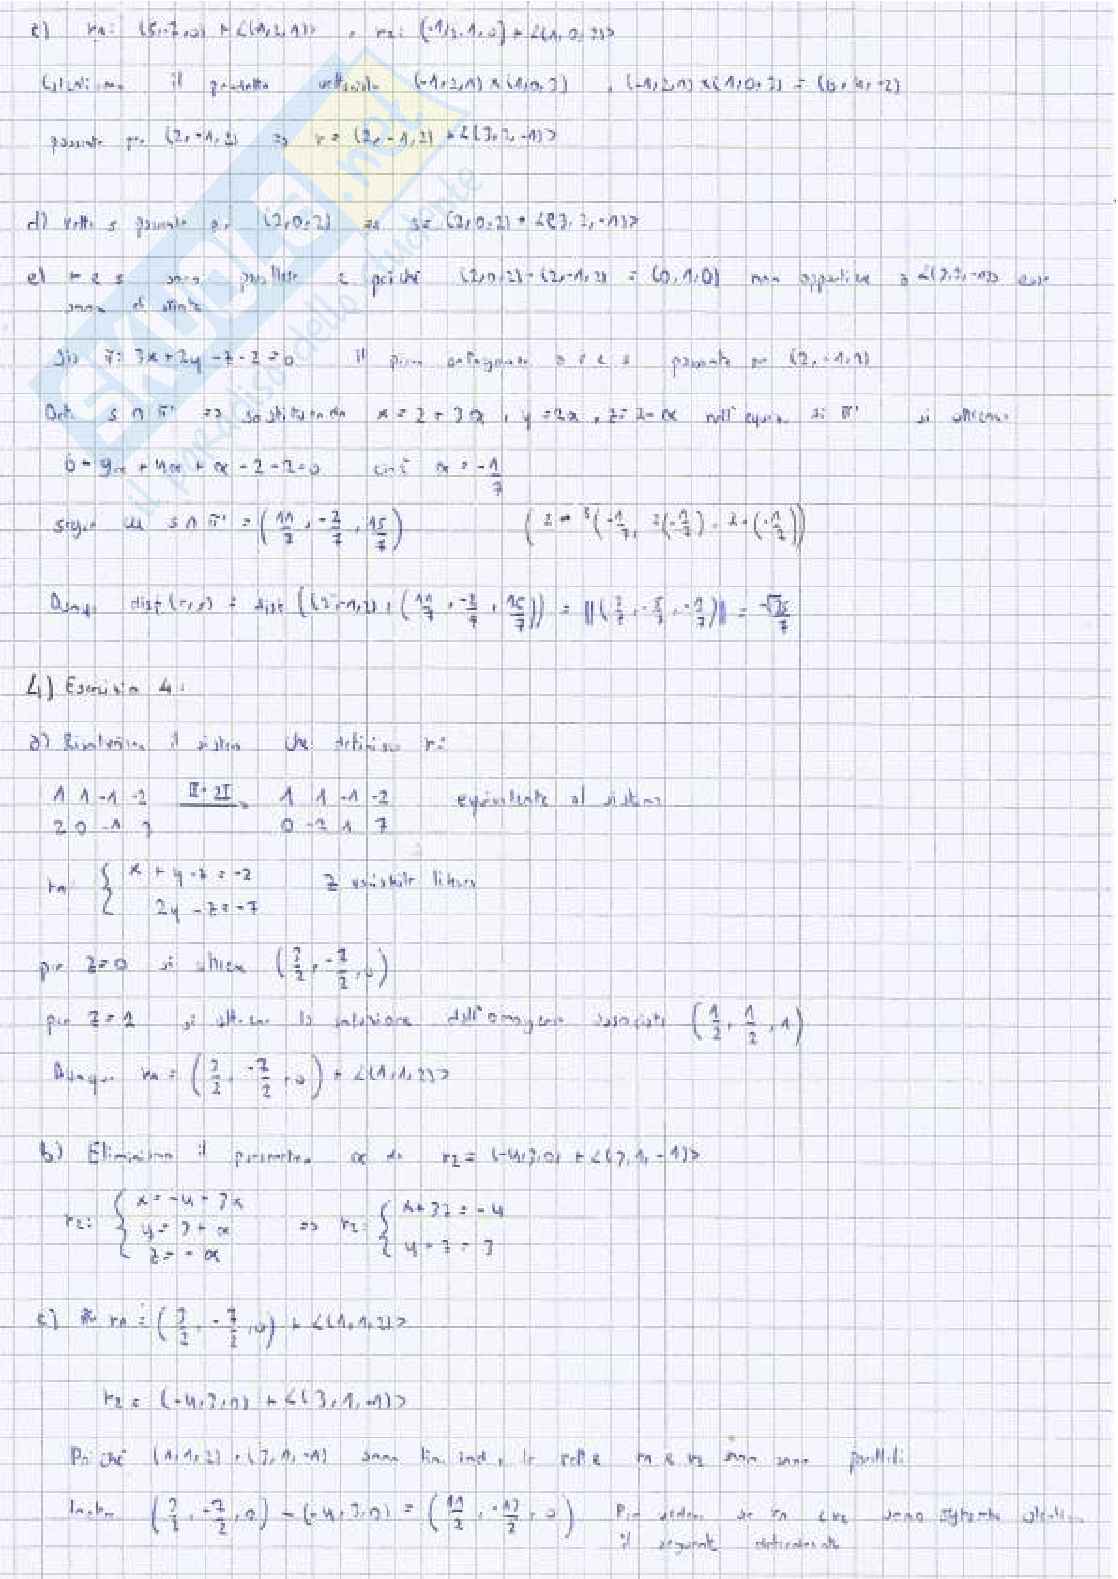 c) r₁: (5,-7,0) + <(-1,2,1)> , r₂: (-1/3,1,0) + <(1,0,3)>
il prodotto vettoriale (-1,2,1) × (1,0,3) , (-1,2,1) × (1,0,3) = (6,4,-2)
passante per (2,-1,2) => r = (2,-1,2) + <(3,2,-1)>
d) retta s passante per (2,0,2) => s = (2,0,2) + <(3,2,-1)>
e) r e s sono parallele e poiché (2,0,2)-(2,-1,2) = (0,1,0) non appartiene a <(3,2,-1)> esse
sono distinte
Sia π: 3x+2y-z-2=0 il piano ortogonale a r e s passante per (2,-1,2)
Det. s ∩ π' => sostituendo x = 2+3α, y = 2α, z = 2-α nell'equaz. di π' si ottiene
6+9α+4α+α-2-2=0 cioè α = -1/7
Segue che s ∩ π' = (11/7, -2/7, 15/7) (2+3(-1/7), 2(-1/7), 2-(-1/7))
Dunque dist(r,s) = dist((2,-1,2), (11/7, -2/7, 15/7)) = ||(3/7, -5/7, -1/7)|| = √35/7
4) Esercizio 4:
a) il sistema che definisce r:
1 1 -1 -2 II-2I 1 1 -1 -2 equivalente al sistema
2 0 -1 3 0 -2 1 7
r₁: { x+y-z=-2 z variabile libera
2y-z=-7
per z=0 si ottiene (3/2, -7/2, 0)
per z=1 si ottiene la soluzione dell'omogenea associata (1/2, 1/2, 1)
Dunque r₁ = (3/2, -7/2, 0) + <(1,1,2)>
b) Eliminiamo il parametro α da r₂ = (-4,3,0) + <(3,1,-1)>
r₂: { x=-4+3α => r₂: { x+3z=-4
y=3+α y+z=3
z=-α
c) r₁ = (3/2, -7/2, 0) + <(1,1,2)>
r₂ = (-4,3,0) + <(3,1,-1)>
Poiché (1,1,2), (3,1,-1) sono lin. ind., le rette r₁ e r₂ non sono parallele.
Inoltre (3/2, -7/2, 0) - (-4,3,0) = (11/2, -13/2, 0) Per vedere se r₁ e r₂ sono sghembe
il seguente determinante
SKUOLA.net
il paradiso dello studente